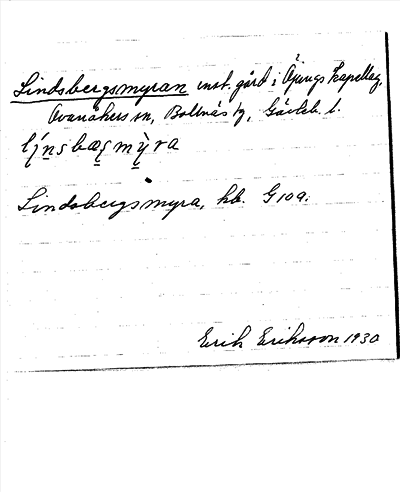 Lindsbergsmyran inst. gård i Åjungs kapellag,
Ovanåkers sn, Bollnäs tg, Gävleb. l.
Lindsbergsmyra, hb. G10a.
Erik Eriksson 1930